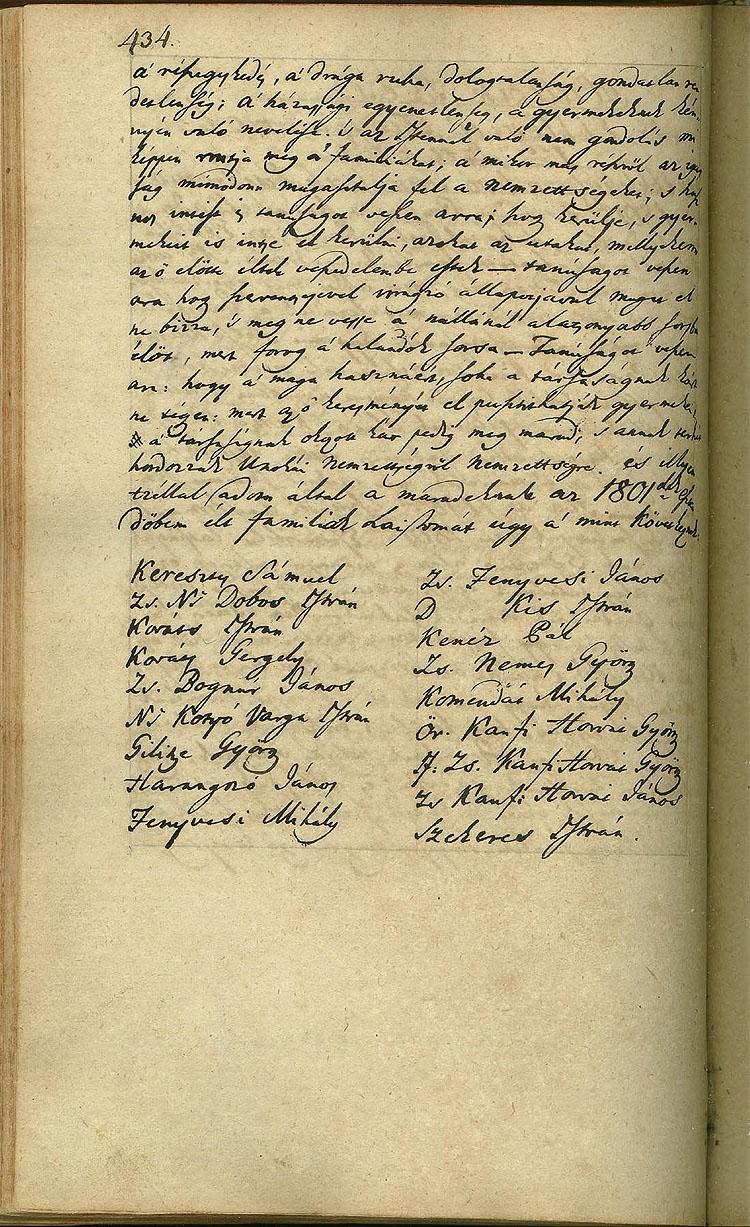 434.
a' részegeskedés, a' drága ruha, dologtalanság, gondatlan ren
detlenség; a' házassági egyenetlenség, a gyermekeknek kén
nyén való nevelése. s az Istennel való nem gondolás mi
képpen rontja meg a' famíliákat; a' mikor más részről az igaz
ság mimódonn magasztalja fel a nemzettségeket; s
int és tanúságot veszen arra; hogy kerülje, s gyer-
mekeit is intse el kerülni, azokat az utakat, mellyeken
az ő előtte éltek veszedelembe estek — tanúságot veszen
arra hogy szerencséjével virágzó állapotjával magát el
ne bízza, 's meg ne vesse a' nállánál alatsonyabb sorsba
élőt, mert forog a' halandók sorsa — Tanúságot veszen
arra: hogy a' maga hasznáért, soha a társaságnak kárt
ne tégyen: mert az ő keresményét el pusztíthatják gyermekei,
a' társaságnak okozott kár pedig meg marad, s annak terhét
hordozzák Unokái nemzettségről nemzettségre. és illyen
tzéllal adom által a maradéknak az 1801dik Eszten
dőben élt famíliák Laistromát úgy a' mint következnek.
Kereszty Sámuel
Zs. Ns Dobos István
Kováts István
Kováts Gergely
Zs. Bognár János
Ns Kozsó Varga István
Gilitze György
Harangozó János
Fenyvesi Mihály
Zs. Fenyvesi János
D Kis István
Kenéz Pál
Zs. Nemes György
Komendás Mihály
Ör. Kanfi Horvát György
If. Zs. Kanfi Horvát György
Zs Kanfi Horvát János
Szekeres István.